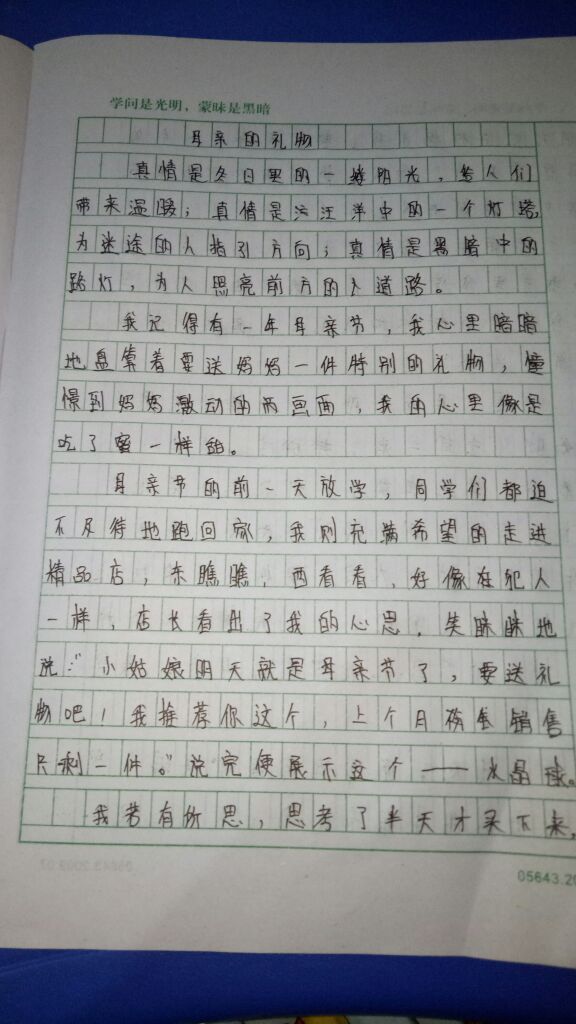 学问是光明，蒙昧是黑暗
母亲的礼物
真情是冬日里的一缕阳光，给人们
带来温暖；真情是汪洋中的一个灯塔，
为迷途的人指引方向；真情是黑暗中的
路灯，为人照亮前方的道路。
我记得有一年母亲节，我心里暗暗
地盘算着要送妈妈一件特别的礼物，憧
憬到妈妈激动的画面，我的心里像是
吃了蜜一样甜。
母亲节的前一天放学，同学们都迫
不及待地跑回家，我则充满希望的走进
精品店，东瞧瞧，西看看，好像在犯人
一样，店长看出了我的心思，笑眯眯地
说："小姑娘明天就是母亲节了，要送礼
物吧！我推荐你这个，上个月销售
只剩一件。"说完便展示这个——水晶球。
我若有所思，思考了半天才买下来，
05643.20